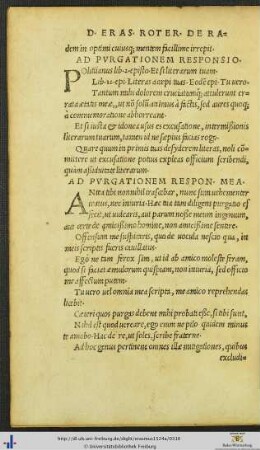 D. ERAS. ROTER. DE RA-
dem in optimi cuiusq; mentem facillime irrepit.
AD PVRGATIONEM RESPONSIO.
POlitianus lib. 2. episto. Et si literarum tuarum.
Lib. 11. epi. Literas accepi tuas. Eodē epi. Tu vero
Tantum mihi dolorem cruciatumq; attulerunt er-
rata aetatis meae, ut nō solū animus à factis, sed aures quoq;
à commemoratione abhorreant.
Et si iusta & idonea usus es excusatione, intermissionis
literarum tuarum, tamen id ne saepius facias rogo.
Quare quum in primis tuas desyderem literas, noli cō-
mittere ut excusatione potius expleas officium scribendi,
quàm assiduitate literarum.
AD PVRGATIONEM RESPON. MEA
ANtea tibi nonnihil irascebar, nunc
amicus, nec iniuria. Haec tua tam diligens purgatio ef
fecit, ut uidearis, aut parum nosse meum ingenium,
aut certe de amicissimo homine, non amicissime sentire.
Offensum me suspicaris, quae de uocula nescio qua, in
meis scriptis fueris cauillatus.
Ego ne tam ferox sim, ut id ab amico moleste feram,
quod si facias aemulorum quispiam, non iniuria, sed officio
me affectum putem.
Tu uero uel omnia mea scripta, me amico reprehendas
licebit.
Caeteri quos purgas debent mihi probati esse, si tibi sunt,
Nihil est quod uereare, ego eum ne pilo quidem minus
te amabo. Hac de re, ut soles, scribe fraterne.
Ad hoc genus pertinent omnes illae mitigationes, quibus
excludi-
http://dl.ub.uni-freiburg.de/diglit/erasmus1524a/0010
© Universitätsbibliothek Freiburg